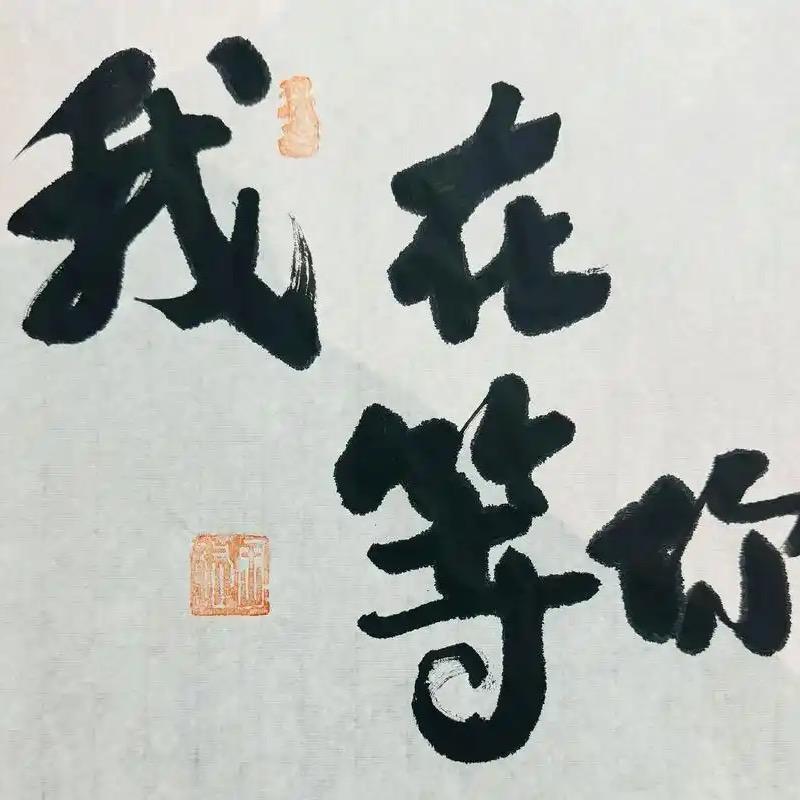 我在
等你